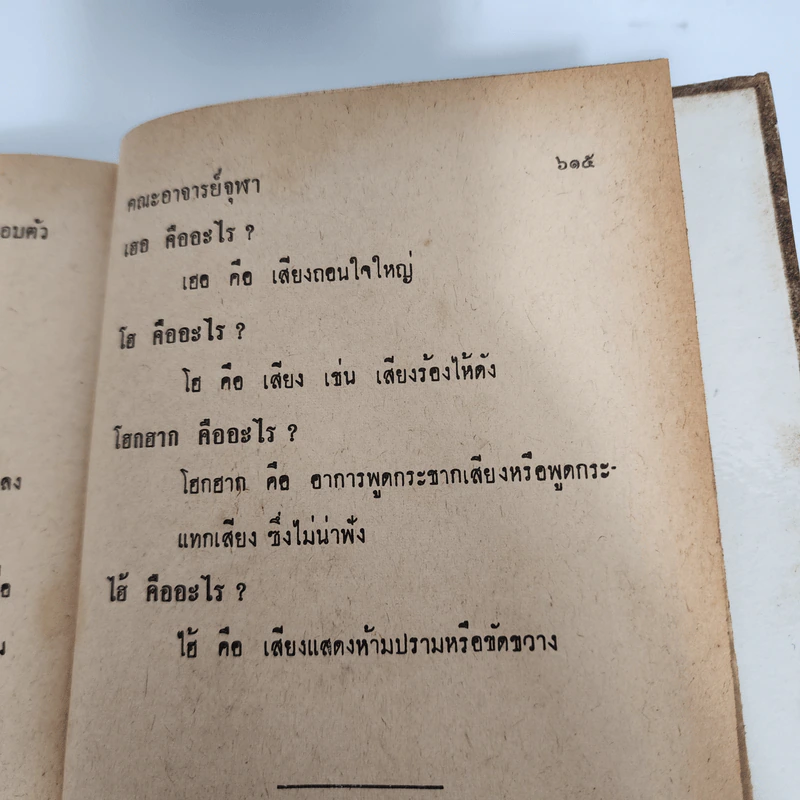 อบตัว
ลง
คณะอาจารย์จุฬา ๖๑๕
เฮอ คืออะไร ?
เฮอ คือ เสียงถอนใจใหญ่
โฮ คืออะไร ?
โฮ คือ เสียง เช่น เสียงร้องไห้ดัง
โฮกฮาก คืออะไร ?
โฮกฮาก คือ อาการพูดกระชากเสียงหรือพูดกระ-
แทกเสียง ซึ่งไม่น่าฟัง
ไฮ้ คืออะไร ?
ไฮ้ คือ เสียงแสดงห้ามปรามหรือขัดขวาง